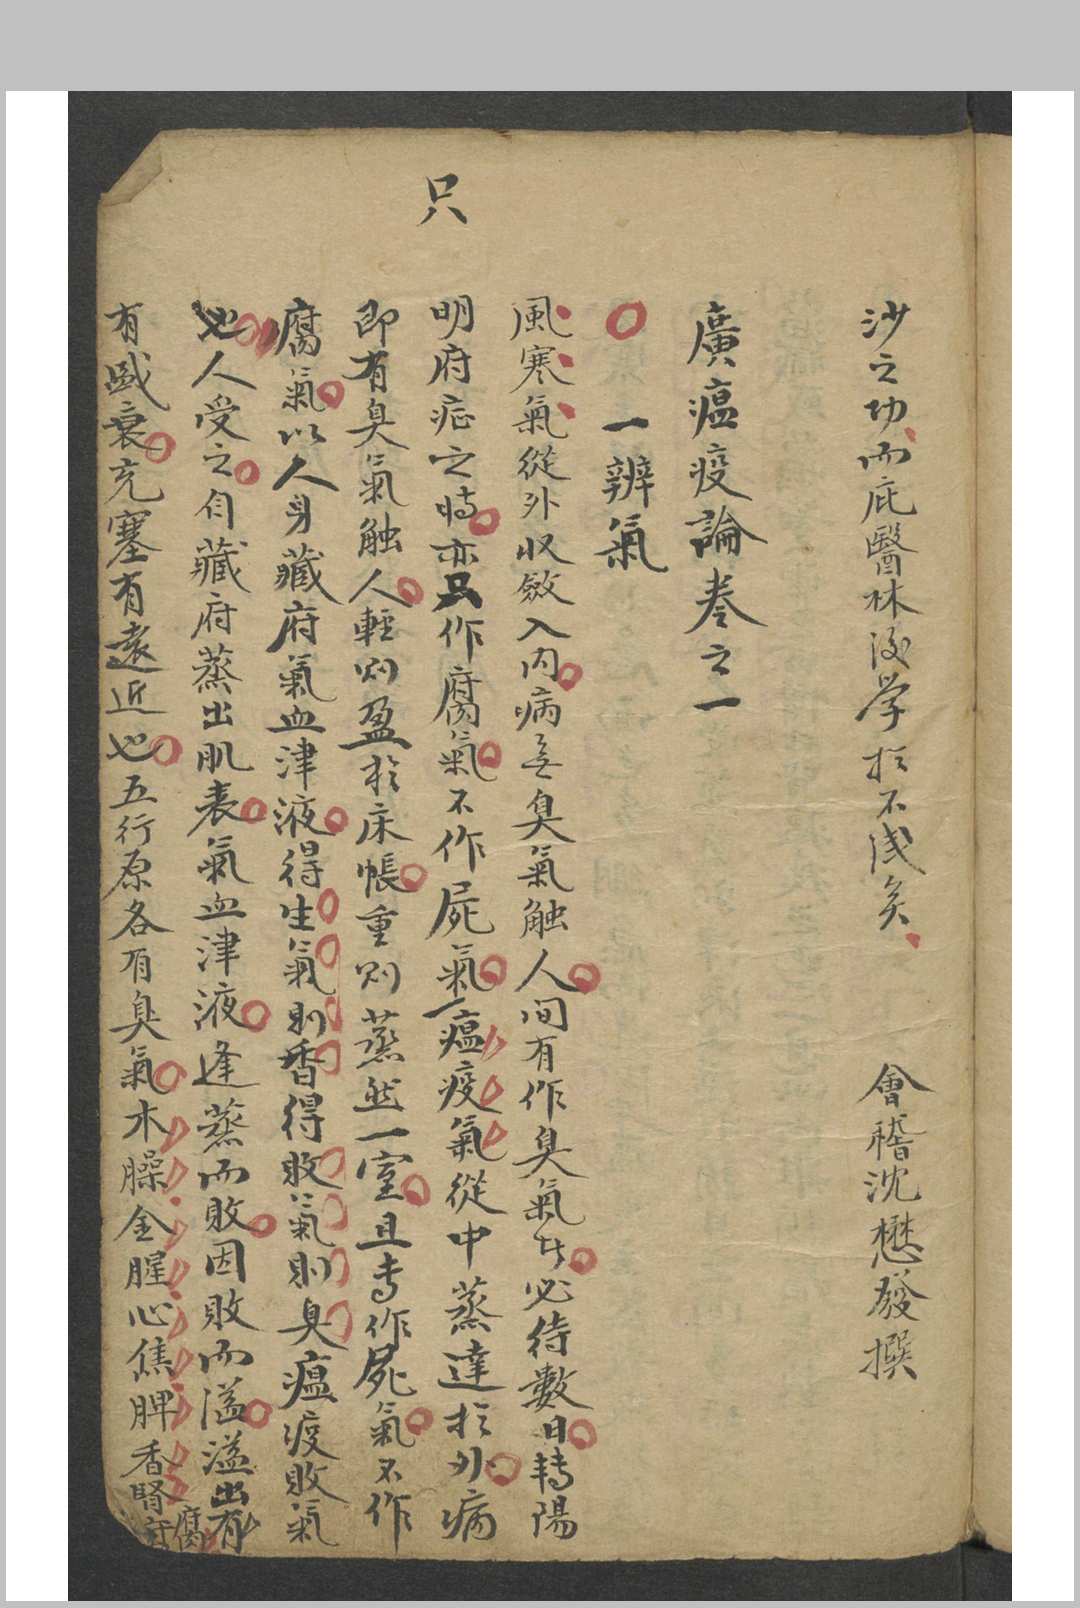 只
沙之功而庇醫林後学於不浅矣 會稽沈懋發撰
廣瘟疫論卷之一
一辨氣
風寒氣從外收斂入内病無臭氣触人间有作臭氣者必待數日轉陽
明府症之時亦只作腐氣不作屍氣瘟疫氣從中蒸達於外病
即有臭氣触人輕则盈於床帳重则蒸然一室且专作屍氣不作
腐氣以人身藏府氣血津液得生氣則香得敗氣則臭瘟疫敗氣
也人受之自藏府蒸出肌表氣血津液逢蒸而敗因敗而溢溢出有
有盛衰充塞有遠近也五行原各有臭氣木臊金腥心焦脾香腎腐